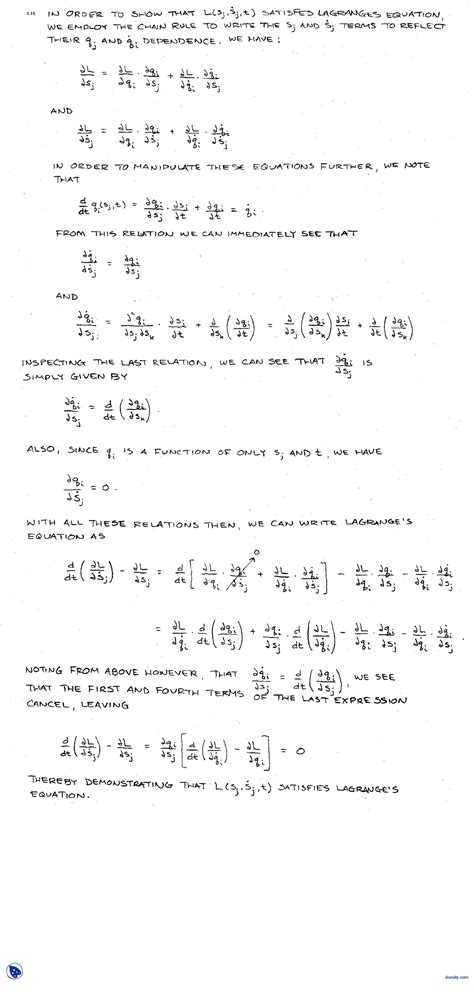 1.15 IN ORDER TO SHOW THAT L(sj, ṡj, t) SATISFIES LAGRANGE'S EQUATION,
WE EMPLOY THE CHAIN RULE TO WRITE THE sj AND ṡj TERMS TO REFLECT
THEIR qj AND q̇j DEPENDENCE. WE HAVE:
∂L/∂sj = ∂L/∂qi · ∂qi/∂sj + ∂L/∂q̇i · ∂q̇i/∂sj
AND
∂L/∂ṡj = ∂L/∂qi · ∂qi/∂ṡj + ∂L/∂q̇i · ∂q̇i/∂ṡj
IN ORDER TO MANIPULATE THESE EQUATIONS FURTHER, WE NOTE
THAT
d/dt qi(sj, t) = ∂qi/∂sj · ∂sj/∂t + ∂qi/∂t = q̇i.
FROM THIS RELATION WE CAN IMMEDIATELY SEE THAT
∂q̇i/∂ṡj = ∂qi/∂sj
AND
∂q̇i/∂sj = ∂²qi/∂sj∂sk · ∂sj/∂t + ∂/∂sk (∂qi/∂t) = ∂/∂sj (∂qi/∂sk) ∂sj/∂t + ∂/∂t (∂qi/∂sk)
INSPECTING THE LAST RELATION, WE CAN SEE THAT ∂q̇i/∂sj IS
SIMPLY GIVEN BY
∂q̇i/∂sj = d/dt (∂qi/∂sk).
ALSO, SINCE qi IS A FUNCTION OF ONLY sj AND t, WE HAVE
∂qi/∂ṡj = 0.
WITH ALL THESE RELATIONS THEN, WE CAN WRITE LAGRANGE'S
EQUATION AS
0
d/dt (∂L/∂ṡj) - ∂L/∂sj = d/dt [∂L/∂qi · ∂qi/∂ṡj + ∂L/∂q̇i · ∂q̇i/∂ṡj] - ∂L/∂qi · ∂qi/∂sj - ∂L/∂q̇i · ∂q̇i/∂sj
= ∂L/∂q̇i · d/dt (∂qi/∂sj) + ∂qi/∂sj · d/dt (∂L/∂q̇i) - ∂L/∂qi · ∂qi/∂sj - ∂L/∂q̇i · ∂q̇i/∂sj.
NOTING FROM ABOVE HOWEVER, THAT ∂q̇i/∂sj = d/dt (∂qi/∂sj), WE SEE
THAT THE FIRST AND FOURTH TERMS OF THE LAST EXPRESSION
CANCEL, LEAVING
d/dt (∂L/∂ṡj) - ∂L/∂sj = ∂qi/∂sj [d/dt (∂L/∂q̇i) - ∂L/∂qi] = 0
THEREBY DEMONSTRATING THAT L(sj, ṡj, t) SATISFIES LAGRANGE'S
EQUATION.
docsity.com